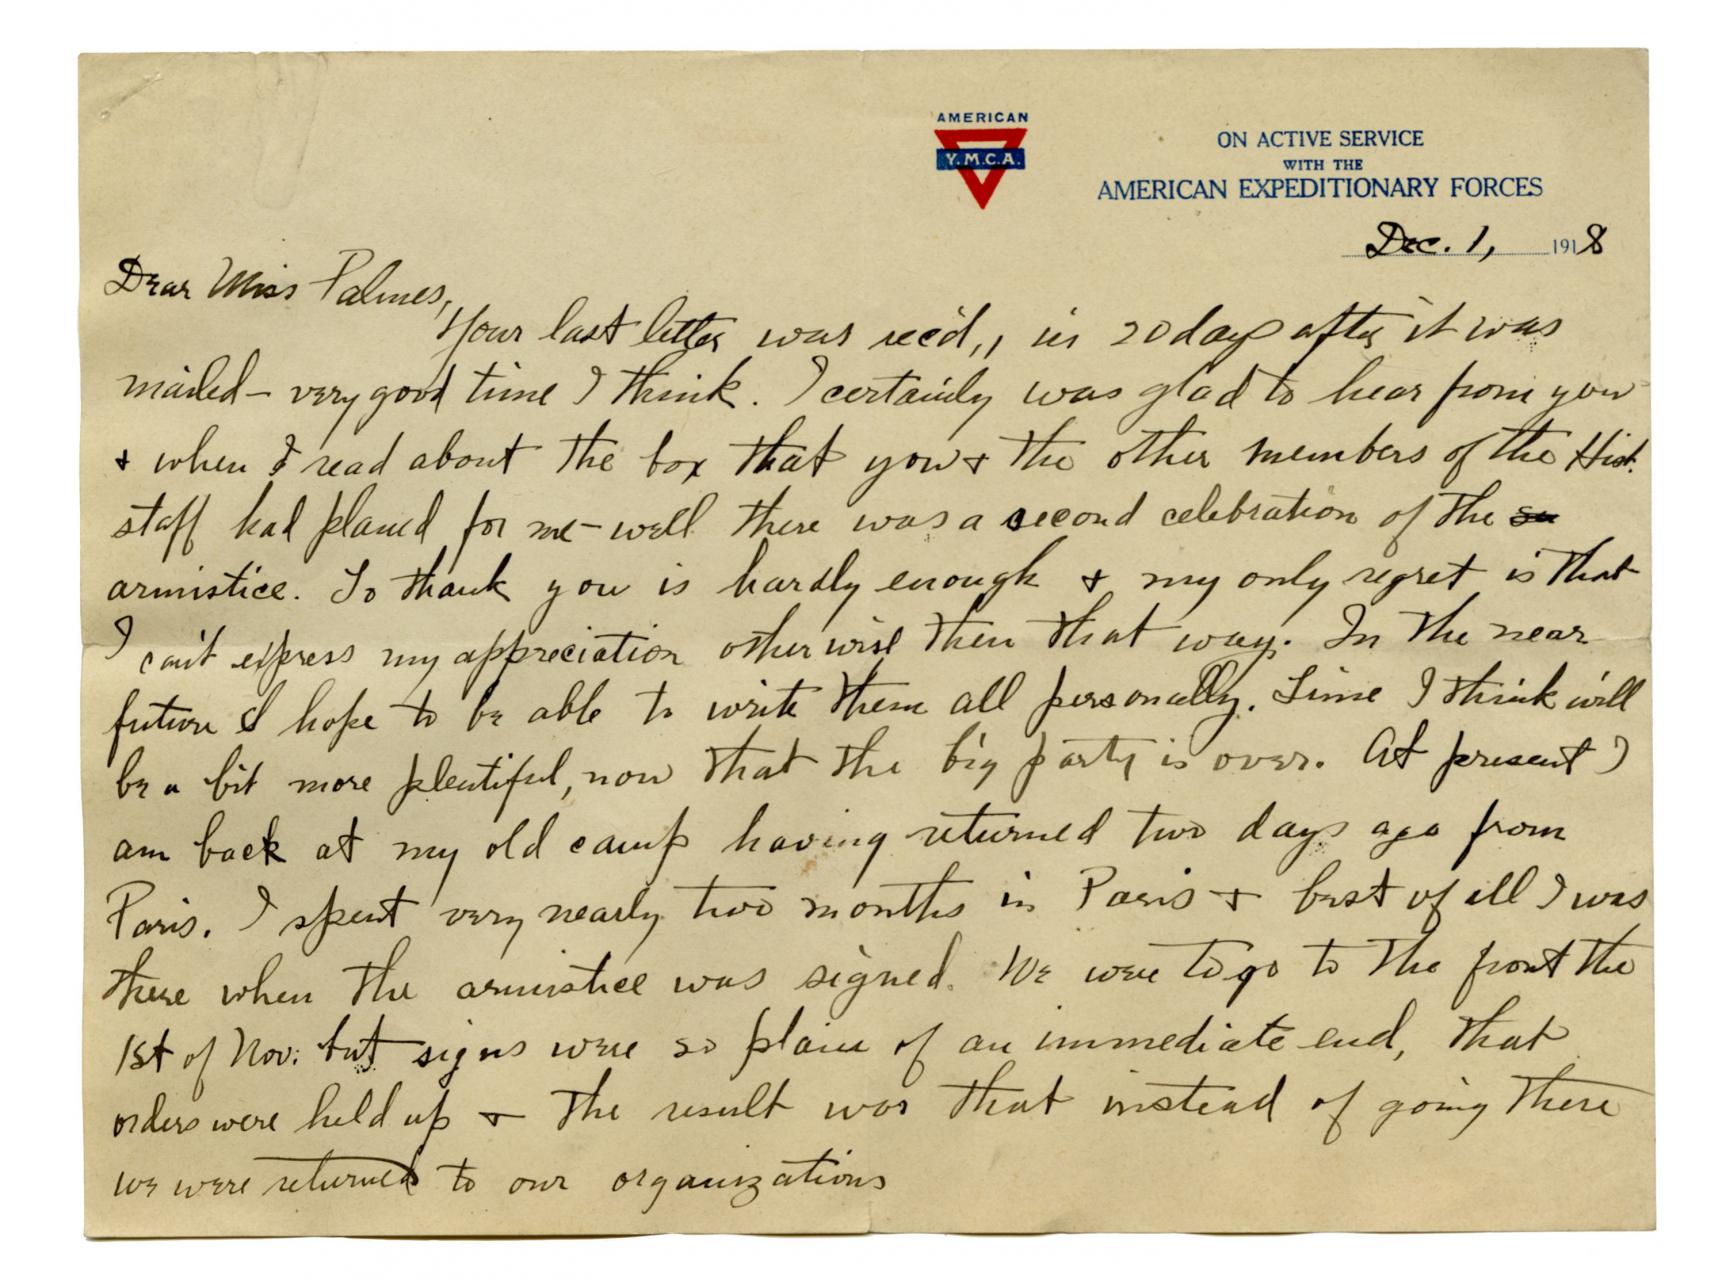 AMERICAN
Y.M.C.A.
ON ACTIVE SERVICE
WITH THE
AMERICAN EXPEDITIONARY FORCES
Dec. 1, 1918
Dear Miss Palmes,
Your last letter was rec'd,, in 20 days after it was
mailed – very good time I think. I certainly was glad to hear from you
& when I read about the box that you & the other members of the Hist.
staff had planed for me – well there was a second celebration of the se
armistice. To thank you is hardly enough & my only regret is that
I can't express my appreciation otherwise then that way. In the near
future I hope to be able to write them all personally. Time I think will
be a bit more plentiful, now that the big party is over. At present I
am back at my old camp having returned two days ago from
Paris. I spent very nearly two months in Paris & best of all I was
there when the armistice was signed. We were to go to the front the
1st of Nov. but signs were so plain of an immediate end, that
orders were held up & the result was that instead of going there
we were returned to our organizations